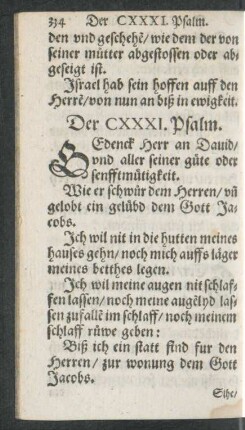 334 Der CXXXI. Psalm.
den vnd geschehẽ/ wie dem der von
seiner mutter abgestossen oder ab-
geseigt ist.
Israel hab sein hoffen auff den
Herrẽ/ von nun an biß in ewigkeit.
Der CXXXI. Psalm.
GEdenck Herr an Dauid/
vnd aller seiner güte oder
senfftmütigkeit.
Wie er schwůr dem Herren/ vñ
gelobt ein gelübd dem Gott Ja-
cobs.
Ich wil nit in die hutten meines
hauses gehn/ noch mich auffs läger
meines betthes legen.
Ich wil meine augen nit schlaf-
fen lassen/ noch meine augẽlyd las-
sen zufallẽ im schlaff/ noch meinem
schlaff růwe geben:
Biß ich ein statt find fur den
Herren/ zur wonung dem Gott
Jacobs.
Sihe/